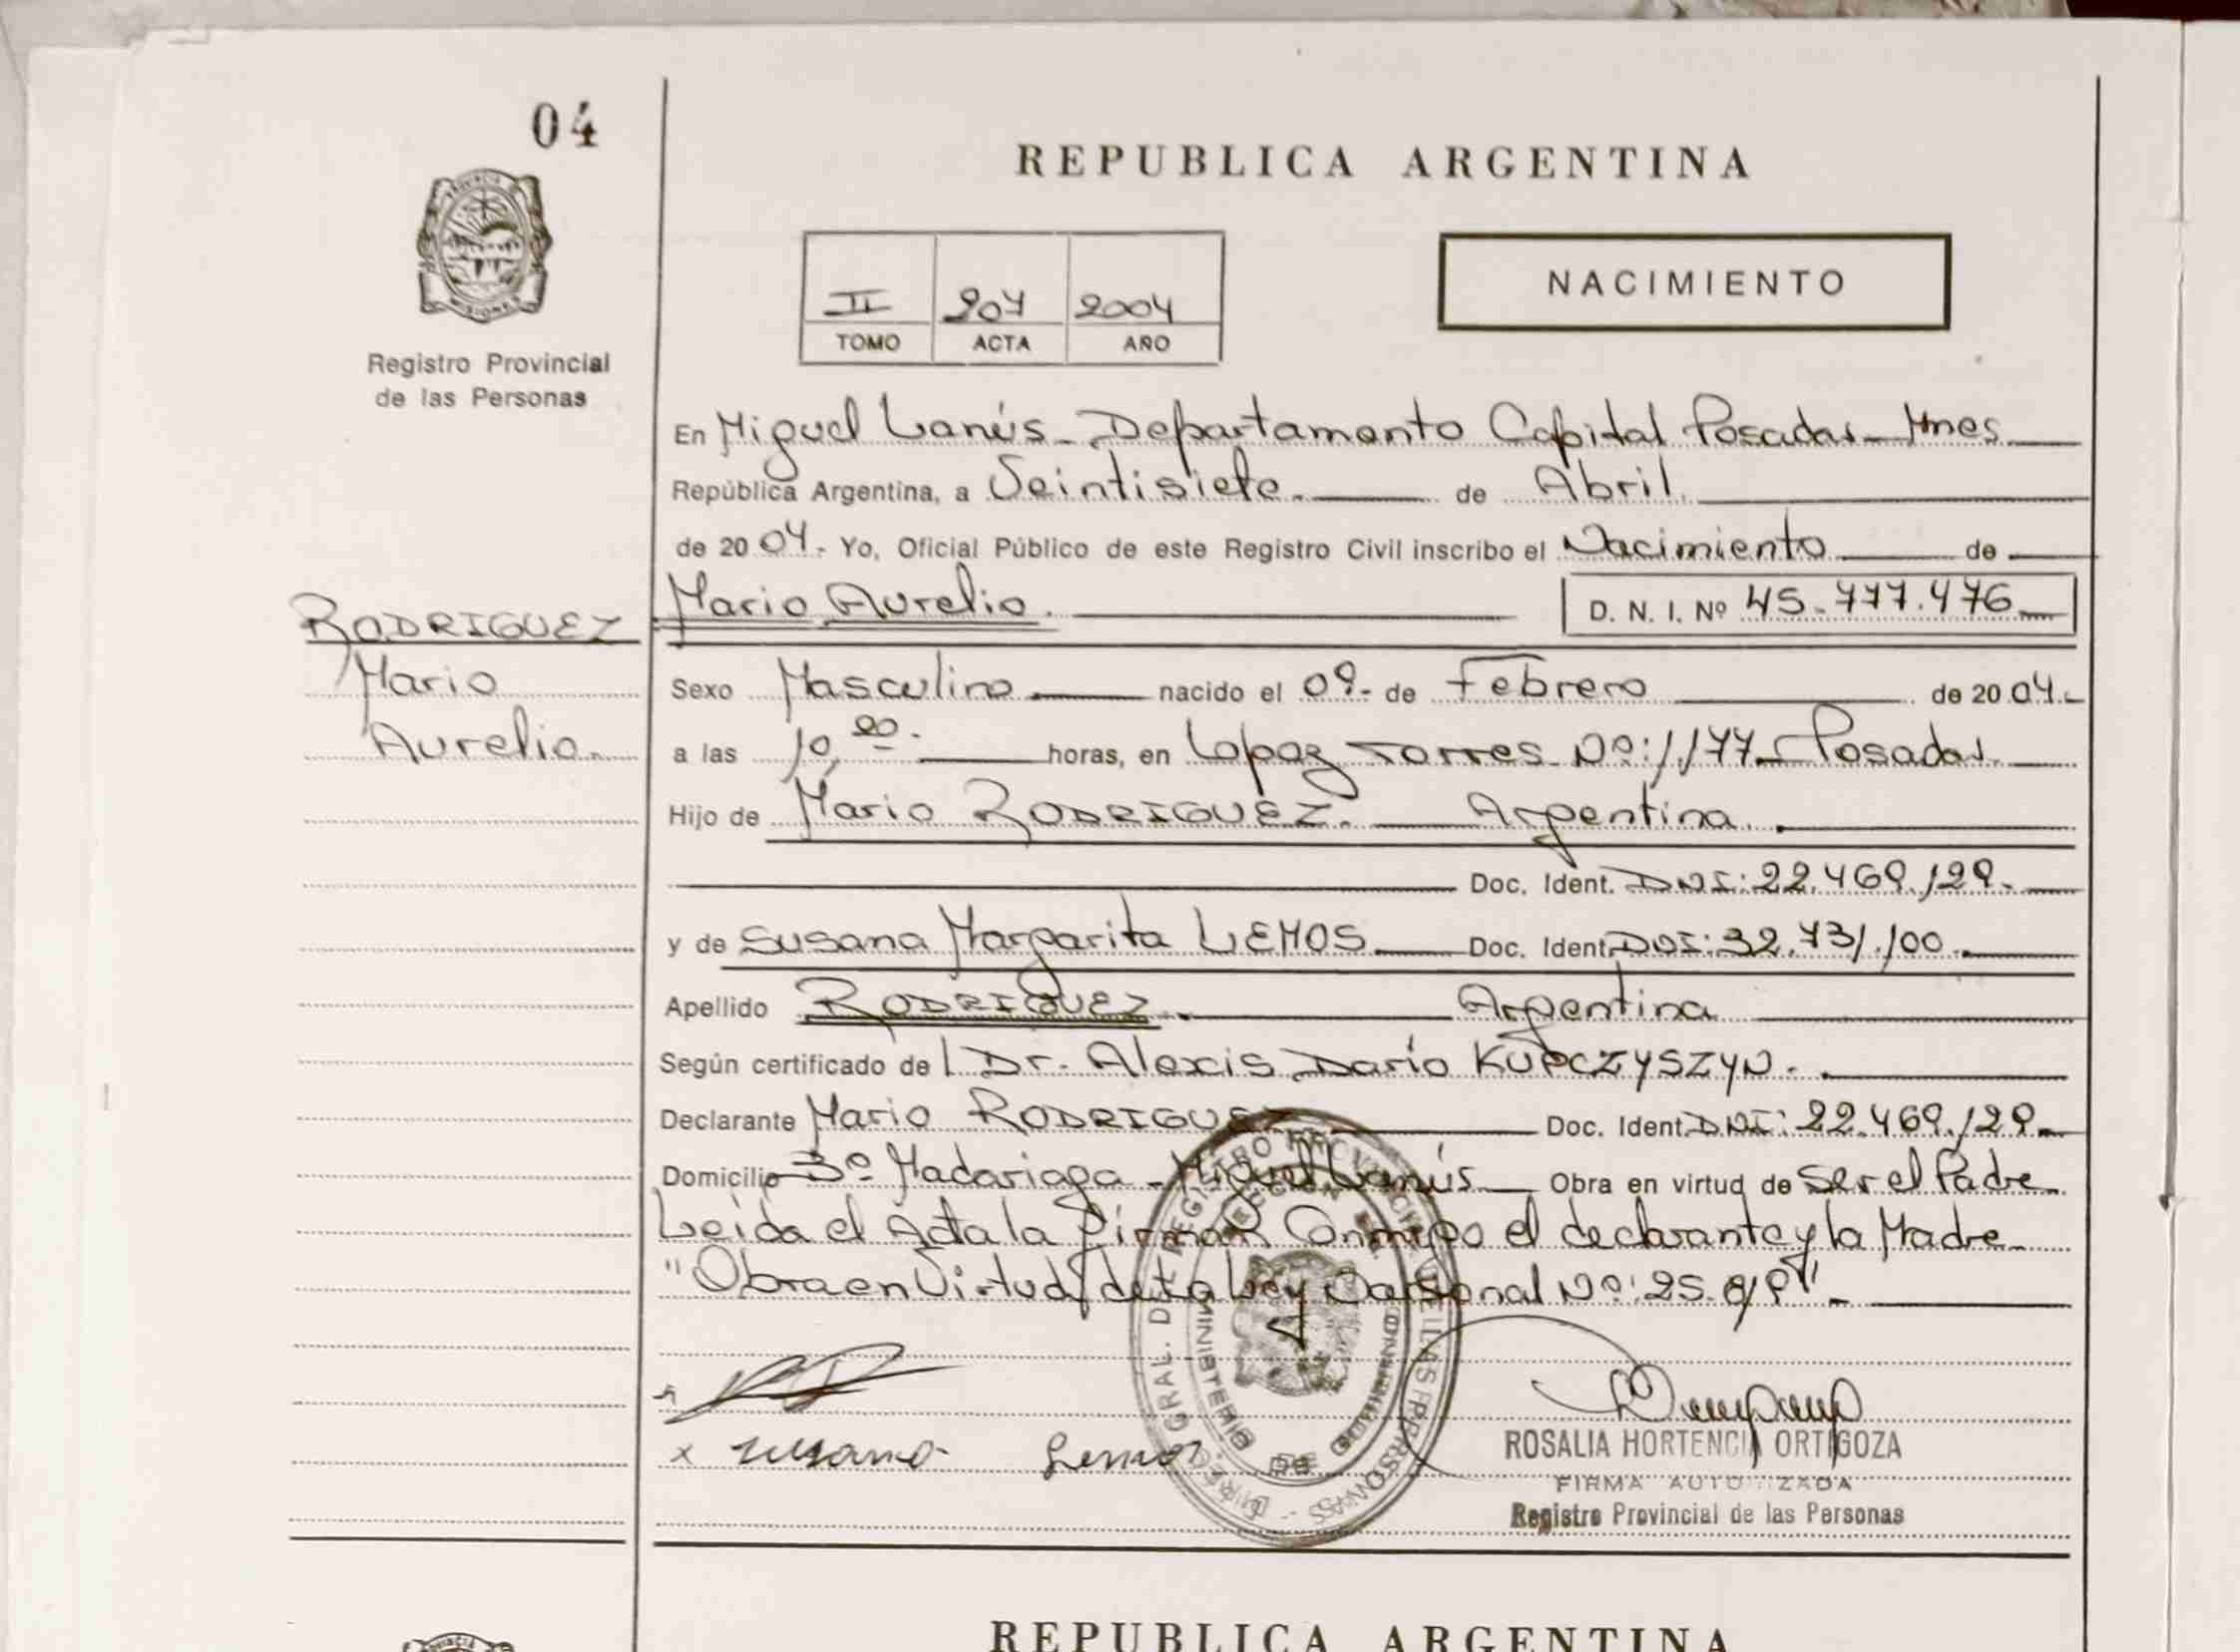 04
REPUBLICA ARGENTINA
PROVINCIA DE
MISIONES
Registro Provincial
de las Personas
II 207 2004
TOMO ACTA AÑO
NACIMIENTO
En Miguel Lanús - Departamento Capital Posadas - Mnes
República Argentina, a Veintisiete. de Abril.
de 20 04.- Yo, Oficial Público de este Registro Civil inscribo el Nacimiento de
RODRIGUEZ
Mario
Aurelio.
Mario Aurelio. D. N. I. Nº 45.777.476
Sexo Masculino nacido el 09.- de Febrero de 20 04.-
a las 10,20.- horas, en Lopez Torres Nº: 1177 - Posadas
Hijo de Mario RODRIGUEZ. Argentina.
Doc. Ident. DNI: 22.469.129.
y de Susana Margarita LEMOS Doc. Ident. DNI: 32.731.100.
Apellido RODRIGUEZ. Argentina
Según certificado del Dr. Alexis Darío KUPCZYSZYN.-
Declarante Mario RODRIGUEZ Doc. Ident. DNI: 22.469.129.
Domicilio 3º Madariaga - Miguel Lanús Obra en virtud de Ser el Padre
Leida el Acta la firman Conmigo el declarante y la Madre
"Obra en Virtud de la Ley Nº: 25.819" -
x Susana Lemos
ROSALIA HORTENCIA ORTIGOZA
FIRMA AUTORIZADA
Registro Provincial de las Personas
MINISTERIO DE GOBIERNO
REPUBLICA ARGENTINA